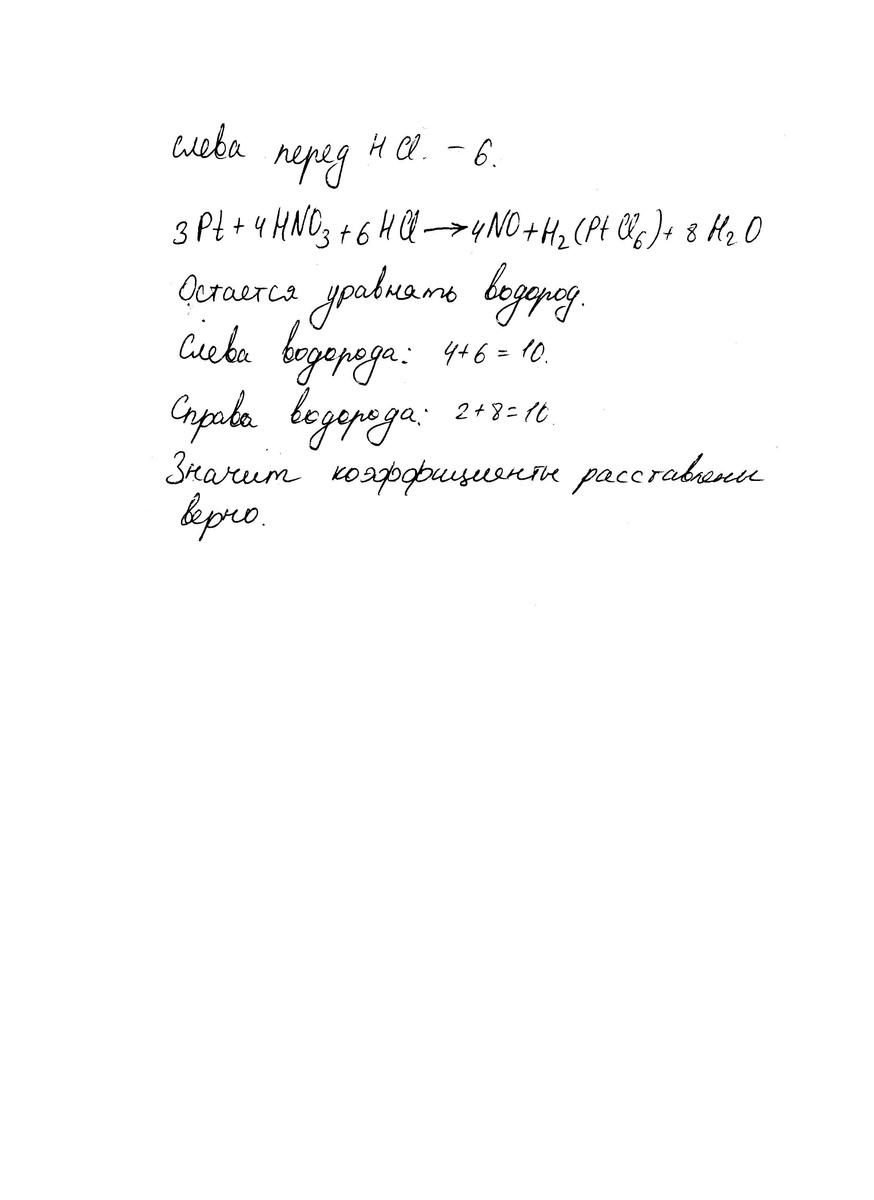 слева перед HCl. – 6.
3Pt + 4HNO₃ + 6HCl → 4NO + H₂(PtCl₆) + 8H₂O
Остается уравнять водород.
Слева водорода: 4+6 = 10.
Справа водорода: 2+8=10.
Значит коэффициенты расставлены
верно.